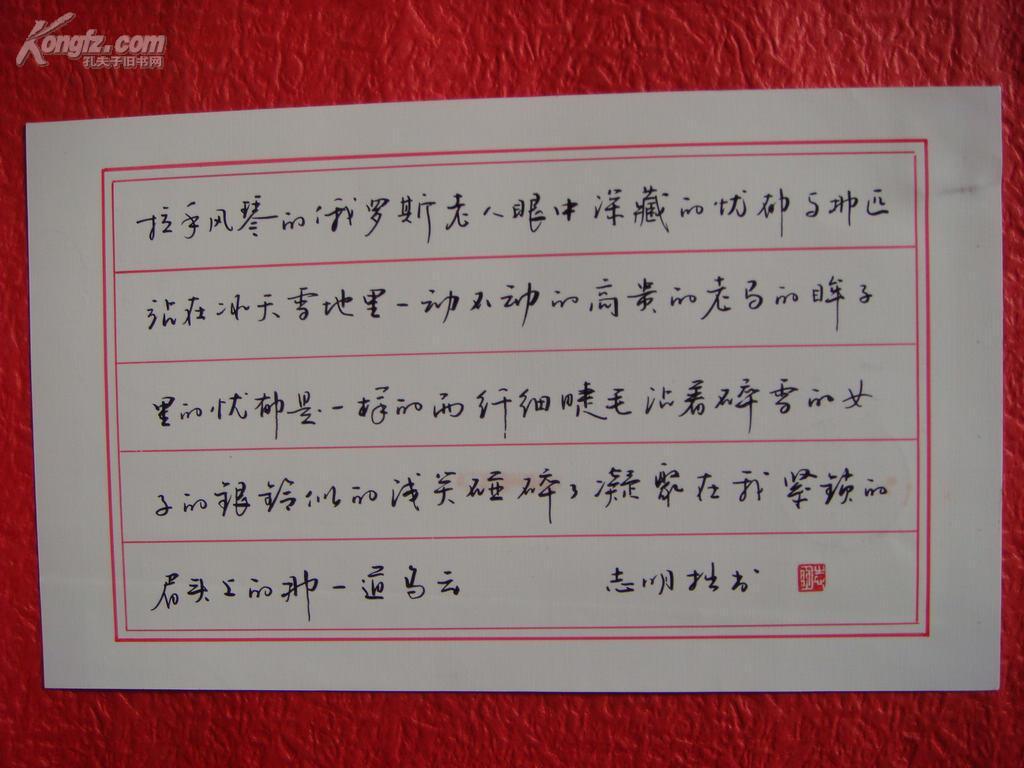 Kongfz.com
孔夫子旧书网
拉手风琴的俄罗斯老人眼中深藏的忧郁与那匹
站在冰天雪地里一动不动的高贵的老马的眸子
里的忧郁是一样的而纤细睫毛沾着碎雪的女
子的银铃似的浅笑砸碎了凝聚在我紧锁的
眉头上的那一道乌云
志明拙书
志明